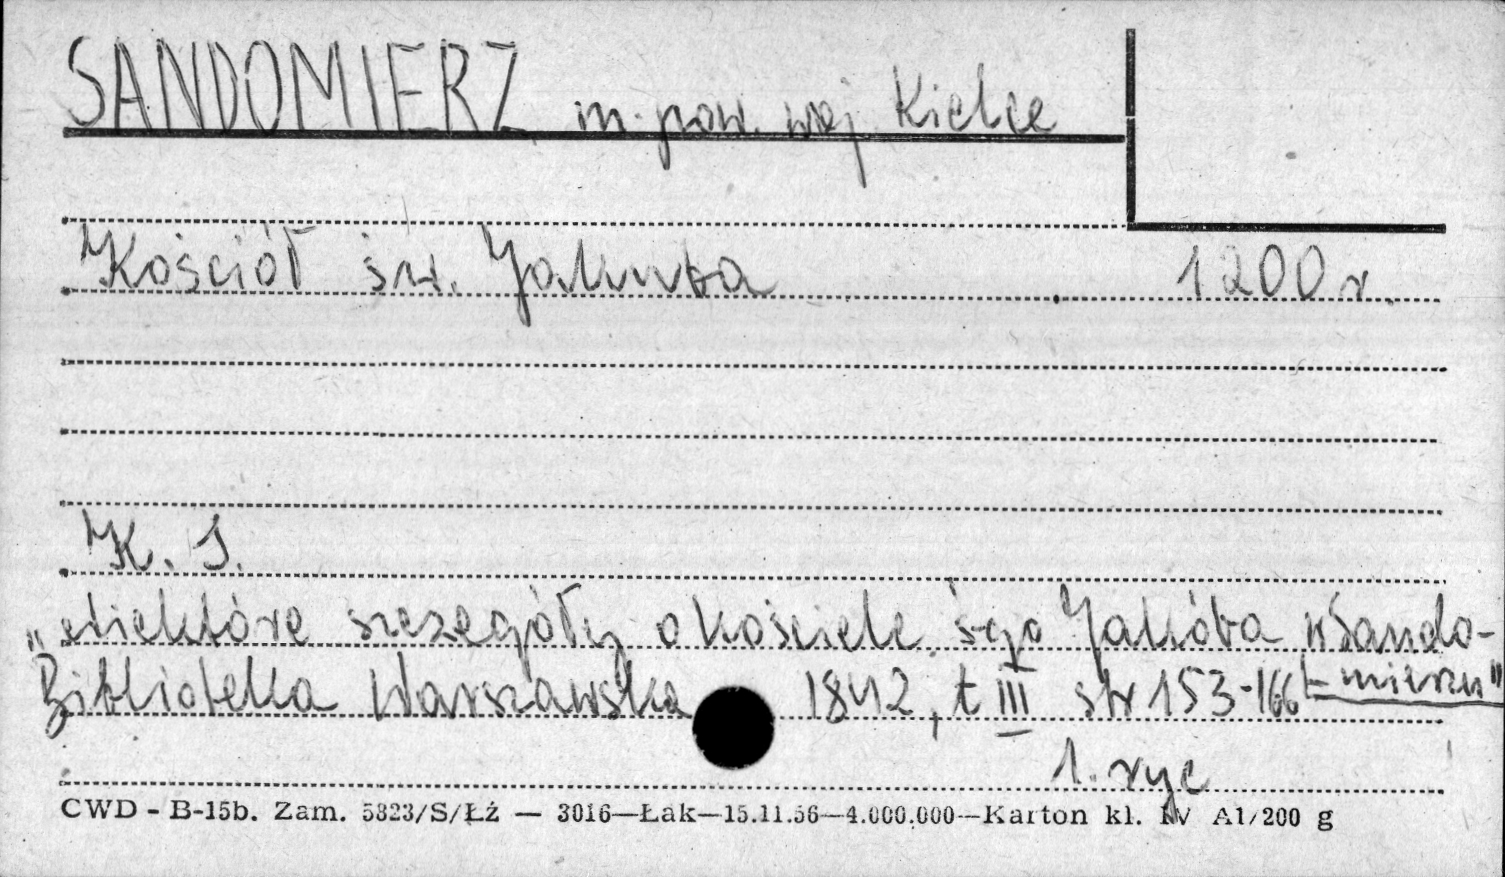 SANDOMIERZ m. pow. woj Kielce
Kościół św. Jakuba 1200 r.
K. S.
„Niektóre szczegóły o kościele ś-go Jakóba w Sando-
mierzu"
Biblioteka Warszawska 1842, t III str 153-166
1. ryc
CWD - B-15b. Zam. 5323/S/Łż — 3016—Łak—15.11.56—4.000.000—Karton kl. IV A1/200 g